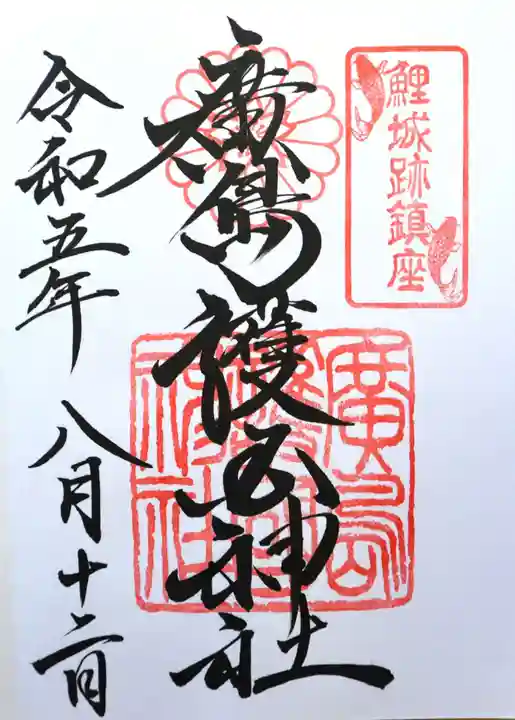 鯉城跡鎮座
廣島護国神社
廣島護國神社
令和五年 八月十二日